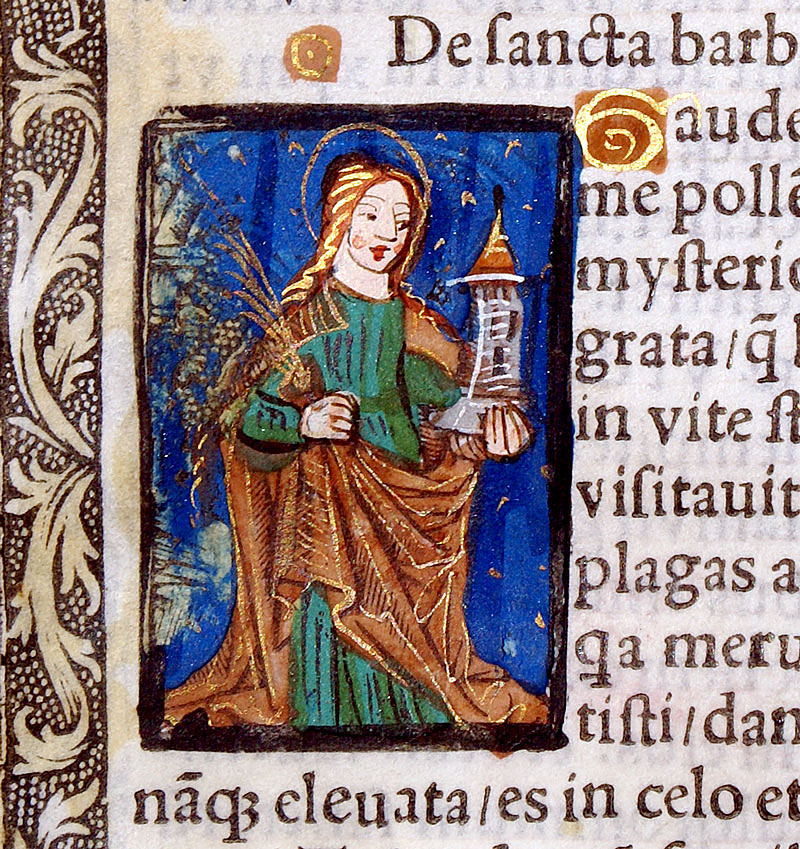 De ſancta barb
Gaude
me pollē
myſterio
grata/q̄
in vite ſt
viſitauit
plagas a
qa meru
tiſti/dan
nāqꝫ eleuata/es in celo et